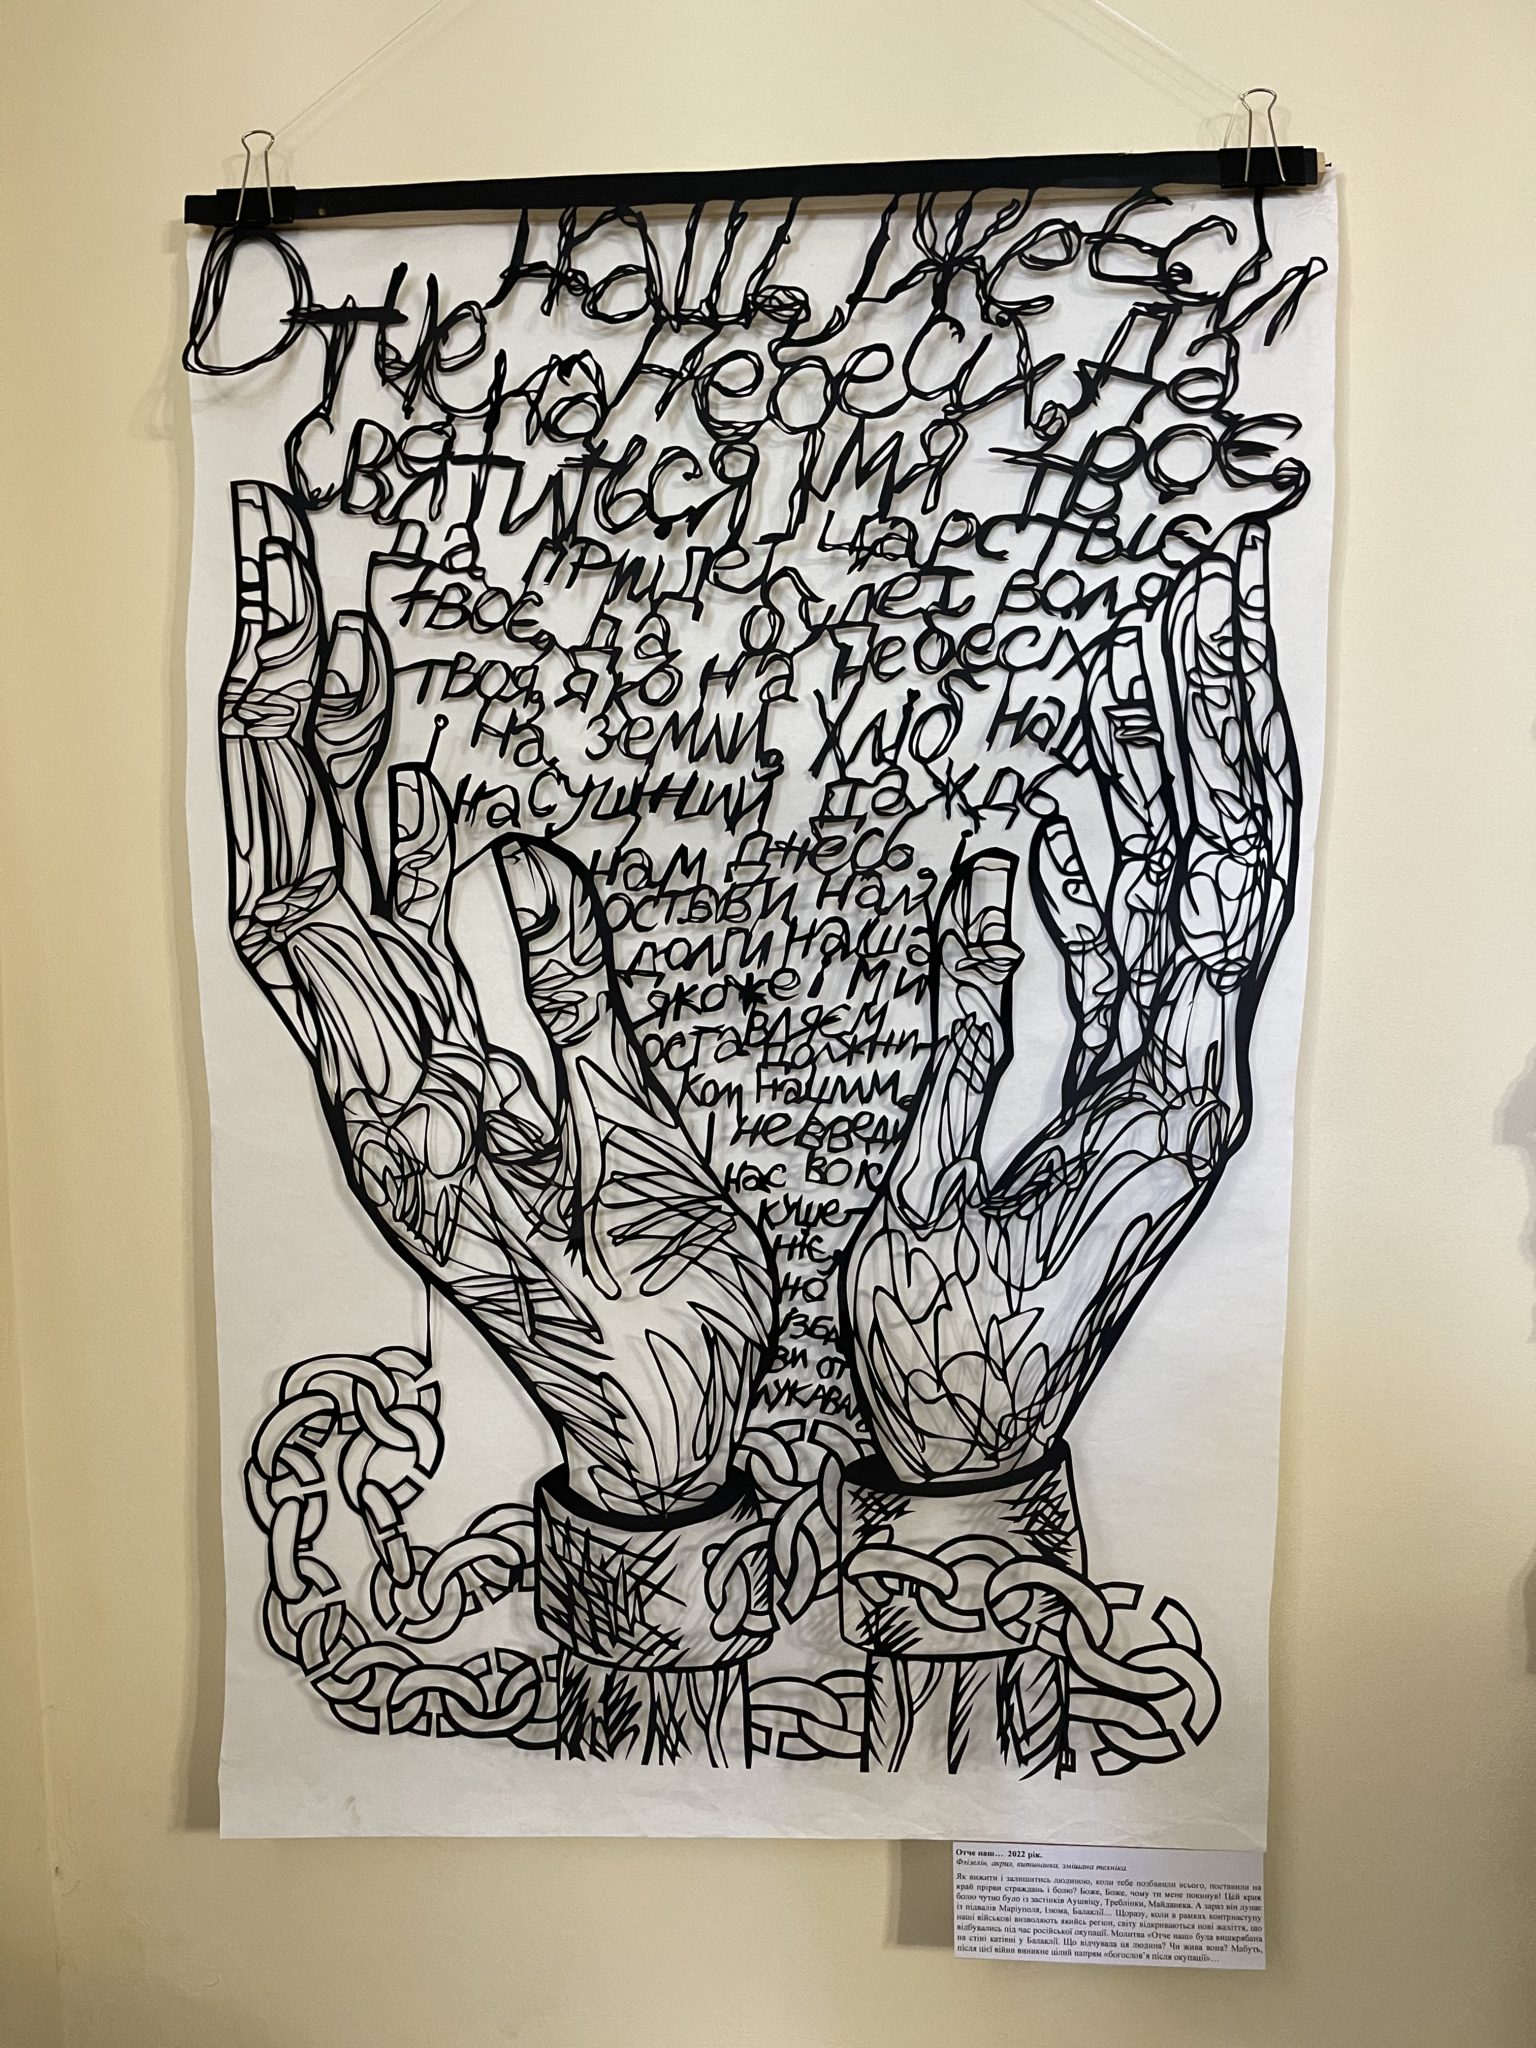 Отче наш, іже єси
на небесіх, да
святиться імя твоє,
да придет царствіє
твоє, да будет воля
твоя, яко на небесіх
і на земли. Хліб наш
насущний даждь
нам днесь,
остави нам
долги наша
якоже і ми
оставляєм
должни-
ком нашим.
І не введи
нас во ис
куше-
ніє,
но
ізба
ви от
лукаваго
Отче наш… 2022 рік.
Флізелін, акрил, витинанка, змішана техніка
Як вижити і залишитись людиною, коли тебе позбавили всього, поставили на
край прірви страждань і болю? Боже, Боже, чому ти мене покинув! Цей крик
болю чутно було із застінків Аушвіцу, Треблінки, Майданека. А зараз він лунає
із підвалів Маріуполя, Ізюма, Балаклії… Щоразу, коли в рамках контрнаступу
наші військові визволяють якийсь регіон, світу відкриваються нові жахіття, що
відбувались під час російської окупації. Молитва «Отче наш» була вишкрябана
на стіні катівні у Балаклії. Що відчувала ця людина? Чи жива вона? Мабуть,
після цієї війни виникне цілий напрям «богослов'я після окупації»…